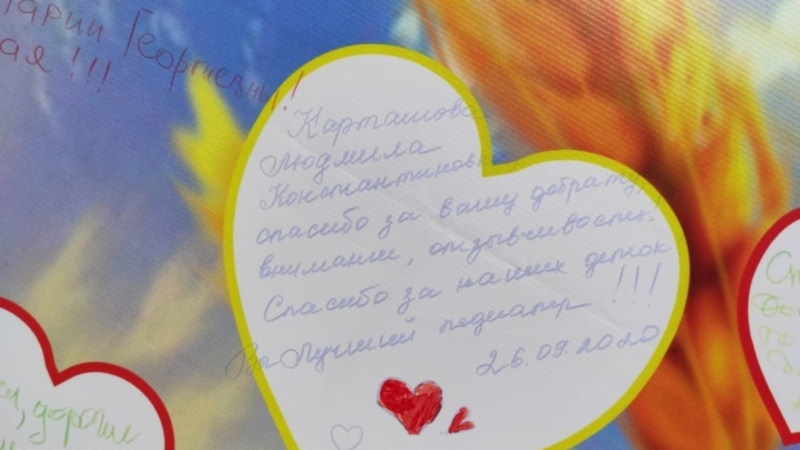 Марии Георгиевны!
ая !!!
Карташова
Людмила
Константиновна
спасибо за вашу доброту,
внимание, отзывчивость.
Спасибо за наших деток
Вы Лучший педиатр !!!
26.09.2020
дорогие